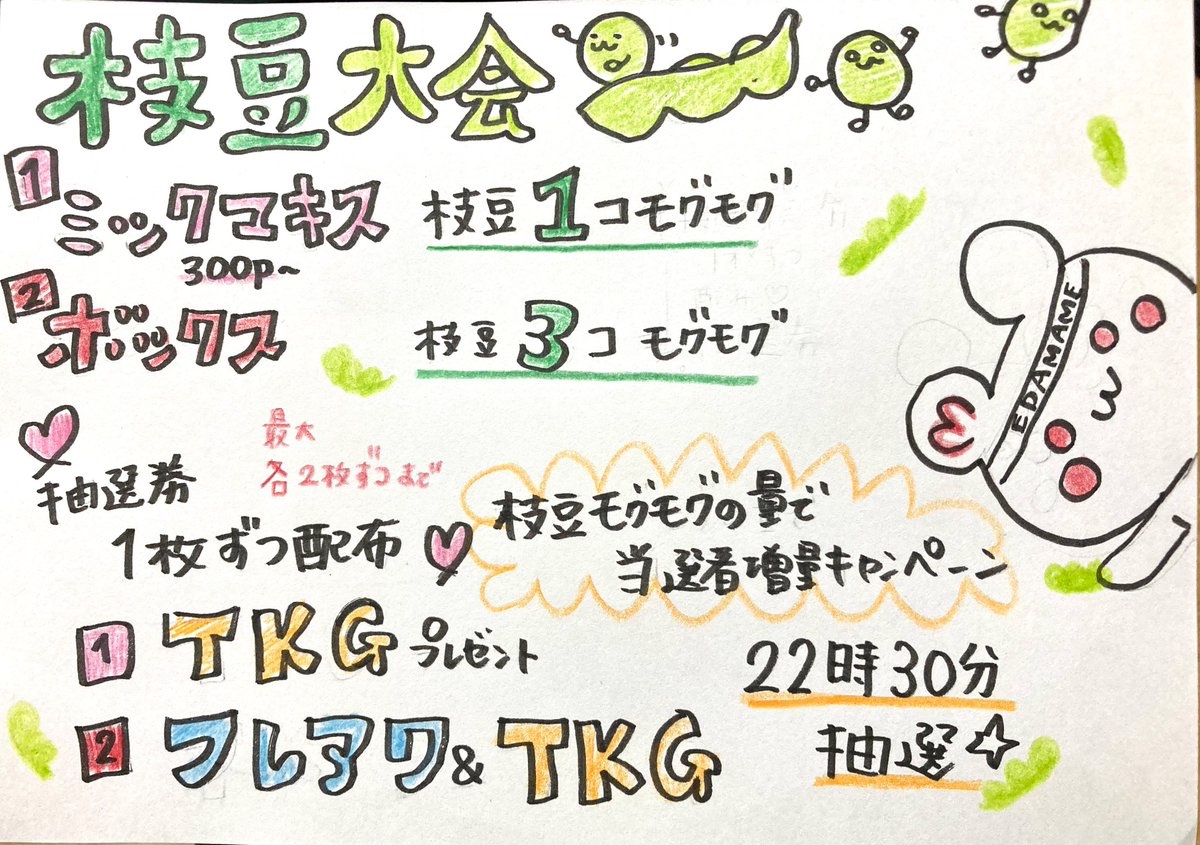 枝豆大会
1 ミックマキス 枝豆1コモグモグ
300p~
2 ボックス 枝豆3コ モグモグ
EDAMAME
最大
各2枚ずつまで
抽選券
1枚ずつ配布
枝豆モグモグの量で
当選者増量キャンペーン
1 TKGプレゼント
22時30分
2 フレアワ&TKG
抽選☆